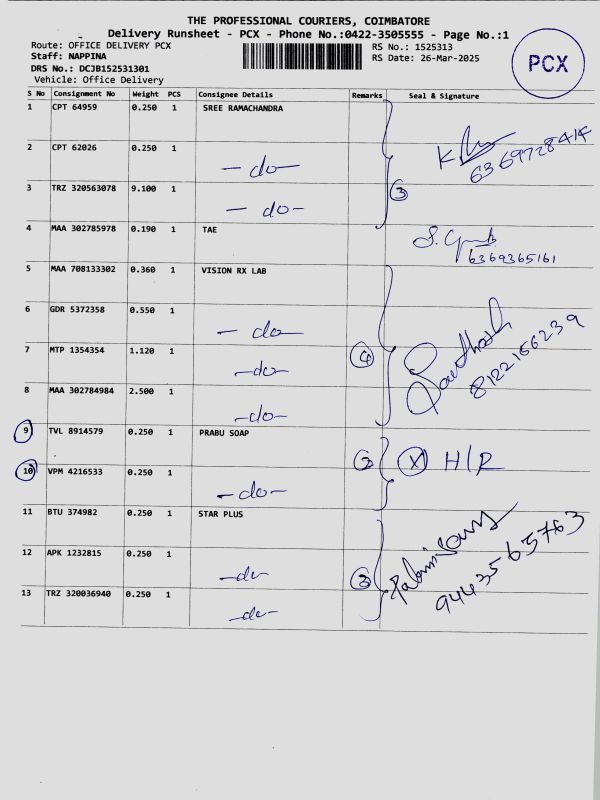 THE PROFESSIONAL COURIERS, COIMBATORE
Delivery Runsheet - PCX - Phone No.:0422-3505555 - Page No.:1
Route: OFFICE DELIVERY PCX
Staff: NAPPINA
DRS No.: DCJB152531301
Vehicle: Office Delivery
RS No.: 1525313
RS Date: 26-Mar-2025
PCX
S No Consignment No Weight PCS Consignee Details Remarks Seal & Signature
1 CPT 64959 0.250 1 SREE RAMACHANDRA
6369728414
2 CPT 62026 0.250 1 -do-
3 TRZ 320563078 9.100 1 -do- 3
4 MAA 302785978 0.190 1 TAE
6369365161
5 MAA 708133302 0.360 1 VISION RX LAB
6 GDR 5372358 0.550 1 -do-
7 MTP 1354354 1.120 1 -do- 4
8122156239
8 MAA 302784984 2.500 1 -do-
9 TVL 8914579 0.250 1 PRABU SOAP
2 X H/R
10 VPM 4216533 0.250 1 -do-
11 BTU 374982 0.250 1 STAR PLUS
12 APK 1232815 0.250 1 -do- 3
9443565763
13 TRZ 320036940 0.250 1 -do-